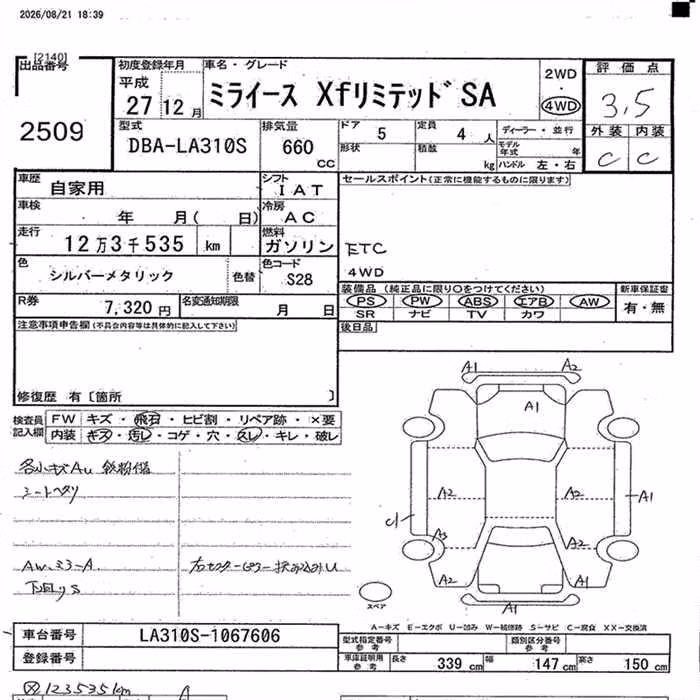 2026/08/21 18:39
[2140]
出品番号
2509
初度登録年月
平成
27 12 月
車名・グレード
ミライース XfリミテッドSA
2WD
・
4WD
評価点
3.5
外装 内装
C C
型式
DBA-LA310S
排気量
660 CC
ドア 5
定員 4 人
ディーラー・並行
形状
積載 kg
モデル年式 年
ハンドル 左・右
車歴 自家用
シフト IAT
セールスポイント(正常に機能するものに限ります)
車検 年 月( 日)
冷房 AC
走行 12万3千535 km
燃料 ガソリン
ETC
4WD
色 シルバーメタリック 色替
色コード S28
装備品 (純正品に限り○をつけてください)
新車保証書
PS PW ABS エアB AW
有・無
SR ナビ TV カワ
R券 7,320 円
名変通知期限 月 日
後日品
注意事項申告欄(不具合内容等は具体的に記入して下さい)
修復歴 有〔箇所 〕
検査員記入欄
FW キズ・飛石・ヒビ割・リペア跡・×要
内装 キズ・汚レ・コゲ・穴・スレ・キレ・破レ
各小キズAU 鉄粉傷
シートヘタリ
AW.ヨコ-A
下回りS
A1 A2
A1
A2 A2 A1
C1
A3 A2
A2 A1
A1
スペア
A-キズ E-エクボ U-凹み W-補修跡 S-サビ C-腐食 XX-交換済
車台番号 LA310S-1067606
登録番号
型式指定番号 参考
類別区分番号 参考
車庫証明用 参考
長さ 339 cm 幅 147 cm 高さ 150 cm
123535km A